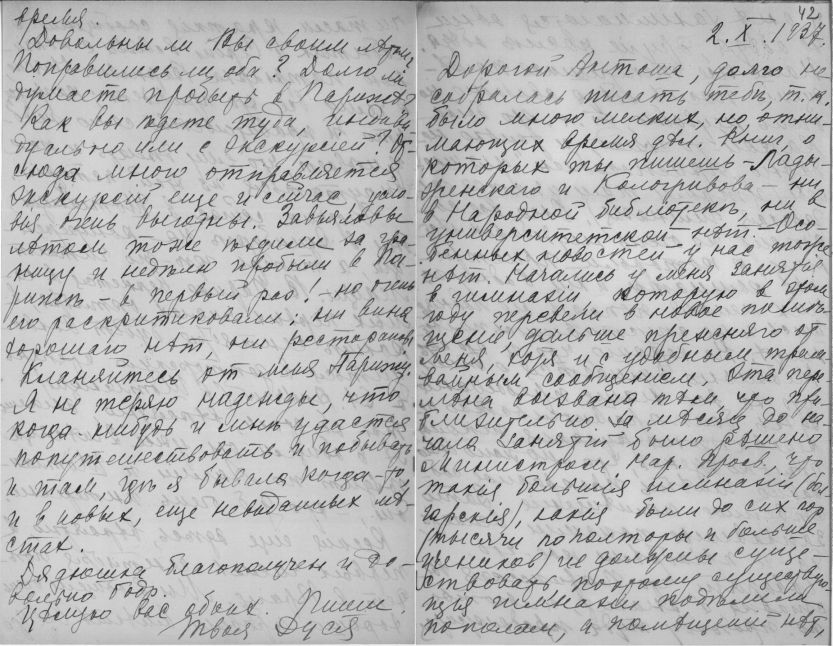 время.
Довольны ли Вы своим лѣтом?
Поправились ли оба? Долго ли
думаете пробыть в Парижѣ?
Как вы ѣдете туда, индиви-
дуально или с экскурсіей? От-
сюда много отправляется
экскурсій еще и сейчас, усло-
вія очень выгодны. Завьяловы
лѣтом тоже ѣздили за гра-
ницу и недѣлю пробыли в Па-
рижѣ – в первый раз! – но очень
его раскритиковали: ни вина
хорошаго нѣт, ни ресторанов
Кланяйтесь от меня Парижу.
Я не теряю надежды, что
когда нибудь и мнѣ удастся
попутешествовать и побывать
и там, гдѣ я бывала когда-то,
и в новых, еще невиданных мѣ-
стах.
Дядюшка благополучен и до-
вольно бодр.
Цѣлую вас обоих. Пиши.
Твоя Дуся
42
2.X.1937.
Дорогой Антоша, долго не
собралась писать тебѣ, т.к.
было много мелких, но отни-
мающих время дѣл. Книг, о
которых ты пишешь – Лады-
женскаго и Кологривова – ни
в Народной библіотекѣ, ни в
университетской нѣт. – Осо-
бенных новостей у нас тоже
нѣт. Начались у меня занятія
в гимназіи, которую в этом
году перевели в новое помѣ-
щеніе, дальше прежняго от
меня, хотя и с удобным трам-
вайным сообщеніем. Эта пере-
мѣна вызвана тѣм, что при-
близительно за мѣсяц до на-
чала занятій было рѣшено
Министром Нар. Просв., что
такія большія гимназіи (бол-
гарскія), какія были до сих пор
(тысячи по полторы и больше
учеников) не должны суще-
ствовать поэтому существую-
щія гимназіи подѣлили
пополам, а помѣщеній нѣт,